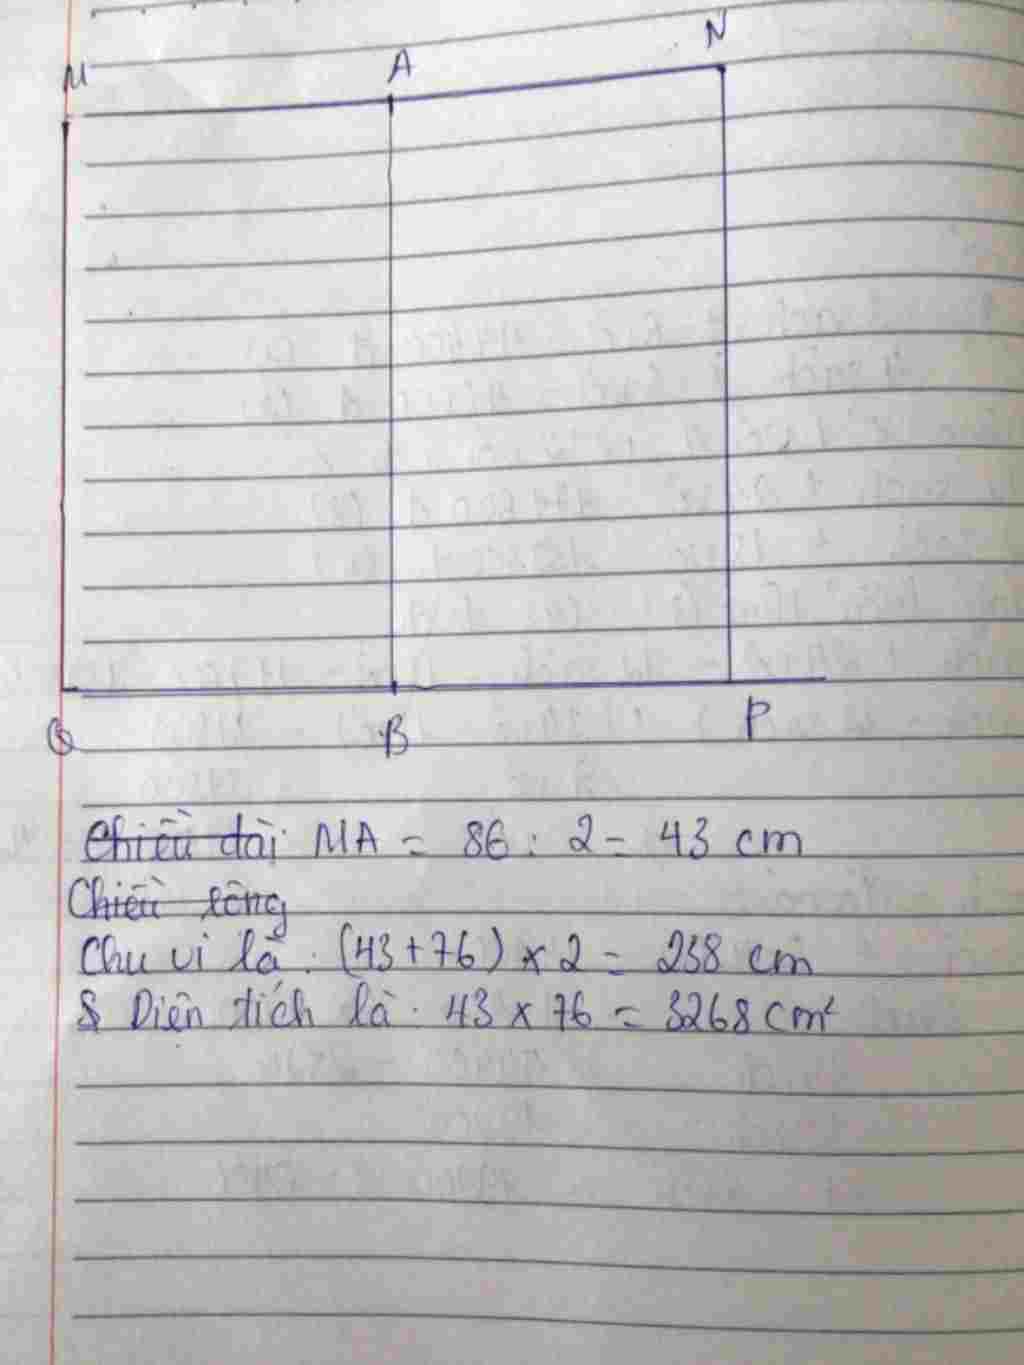 M A N
Q B P
Chiều dài MA = 86 : 2 = 43 cm
Chiều rông
Chu vi là : (43 + 76) x 2 = 238 cm
S Diện tích là : 43 x 76 = 3268 cm²